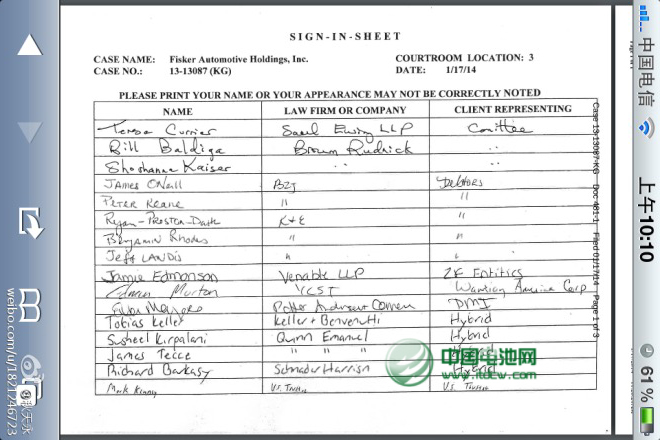 SIGN-IN-SHEET
CASE NAME: Fisker Automotive Holdings, Inc. COURTROOM LOCATION: 3
CASE NO.: 13-13087 (KG) DATE: 1/17/14
PLEASE PRINT YOUR NAME OR YOUR APPEARANCE MAY NOT BE CORRECTLY NOTED
NAME LAW FIRM OR COMPANY CLIENT REPRESENTING
Teresa Currier Saul Ewing LLP
Bill Baldiga Brown Rudnick ..
Shoshanna Kaiser .. ..
James O'Neill Debtors
Peter Keane " "
Ryan K+E "
Benjamin Rhodes " "
Jeff LANDIS " "
Jamie Edmonson Venable LLP ZF Entities
Edmon Morton YCST Wanxiang America Corp
Potter Anderson Corroon DMI
Tobias Keller Keller + Benvenutti Hybrid
Susheel Kirpalani Quinn Emanuel Hybrid
James Tecce " " " Hybrid
Richard Barkasy Schnader Harrison Hybrid
Mark Kenney U.S. Trustee U.S. Trustee
Case 13-13087-KG Doc 481-1 Filed 01/17/14 Page 1 of 3
中国电池网
www.itdcw.com
中国电信
上午10:10
61%
weibo.com/u/1821246723